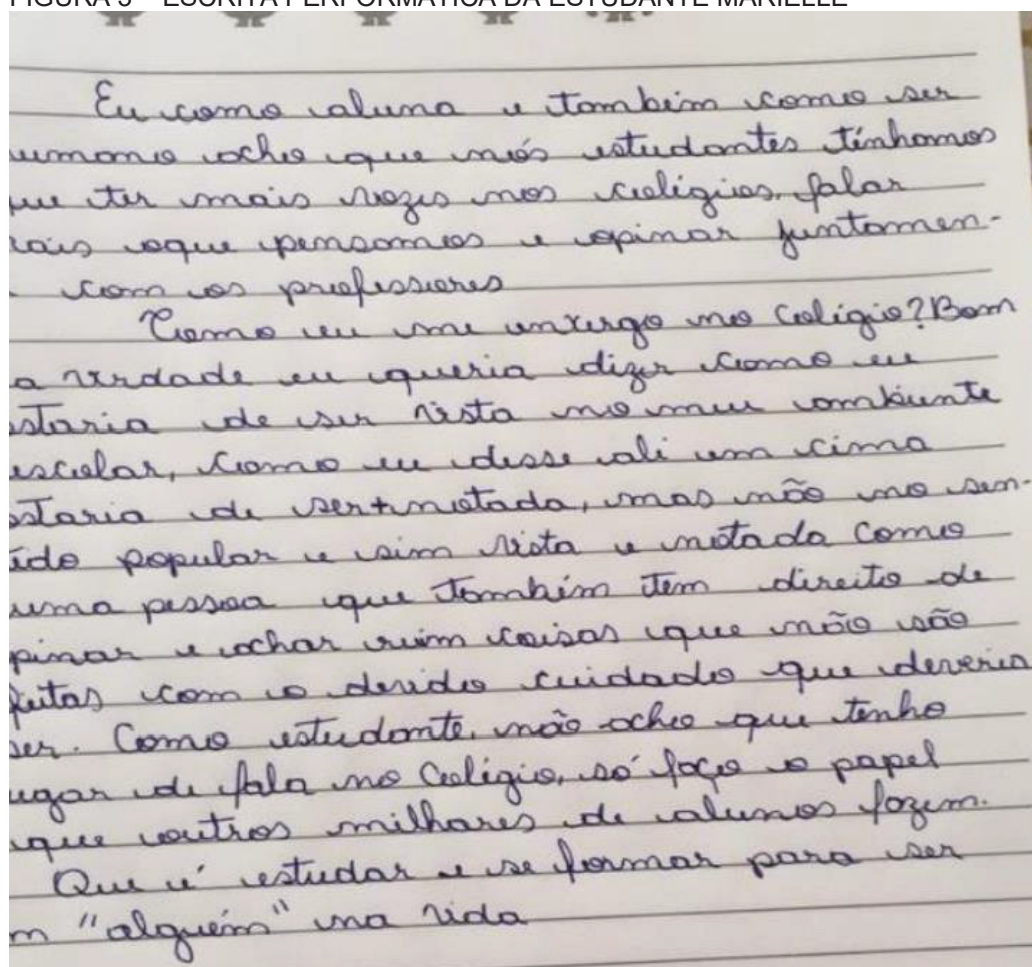 FIGURA 3 – ESCRITA PERFORMÁTICA DA ESTUDANTE MARIELLE
Eu como aluna e também como ser
umano acho que nós estudantes tínhamos
que ter mais vozes nos colégios, falar
mais oque pensamos e opinar juntamen-
com os professores
Como eu me enxergo no Colégio? Bom
a verdade eu queria dizer como eu
ostaria de ser vista no meu ambiente
escolar, como eu disse ali em cima
ostaria de ser notada, mas não no sen-
ido popular e sim vista e notada como
uma pessoa que também tem direito de
pinar e achar ruim coisas que não são
feitas com o devido cuidado que deveria
ser. Como estudante, não acho que tenho
ugar de fala no Colégio, só faço o papel
que outros milhares de alunos fazem.
Que é estudar e se formar para ser
m "alguém" na vida